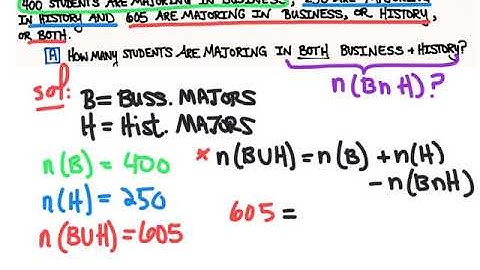 400 STUDENTS ARE MAJORING IN BUSINESS,
IN HISTORY AND 605 ARE MAJORING IN BUSINESS, OR HISTORY,
OR BOTH.
A HOW MANY STUDENTS ARE MAJORING IN BOTH BUSINESS + HISTORY?
n(B∩H)?
Sol: B = BUSS. MAJORS
H = Hist. MAJORS
n(B) = 400
* n(B∪H) = n(B) + n(H)
- n(B∩H)
n(H) = 250
605 =
n(B∪H) = 605